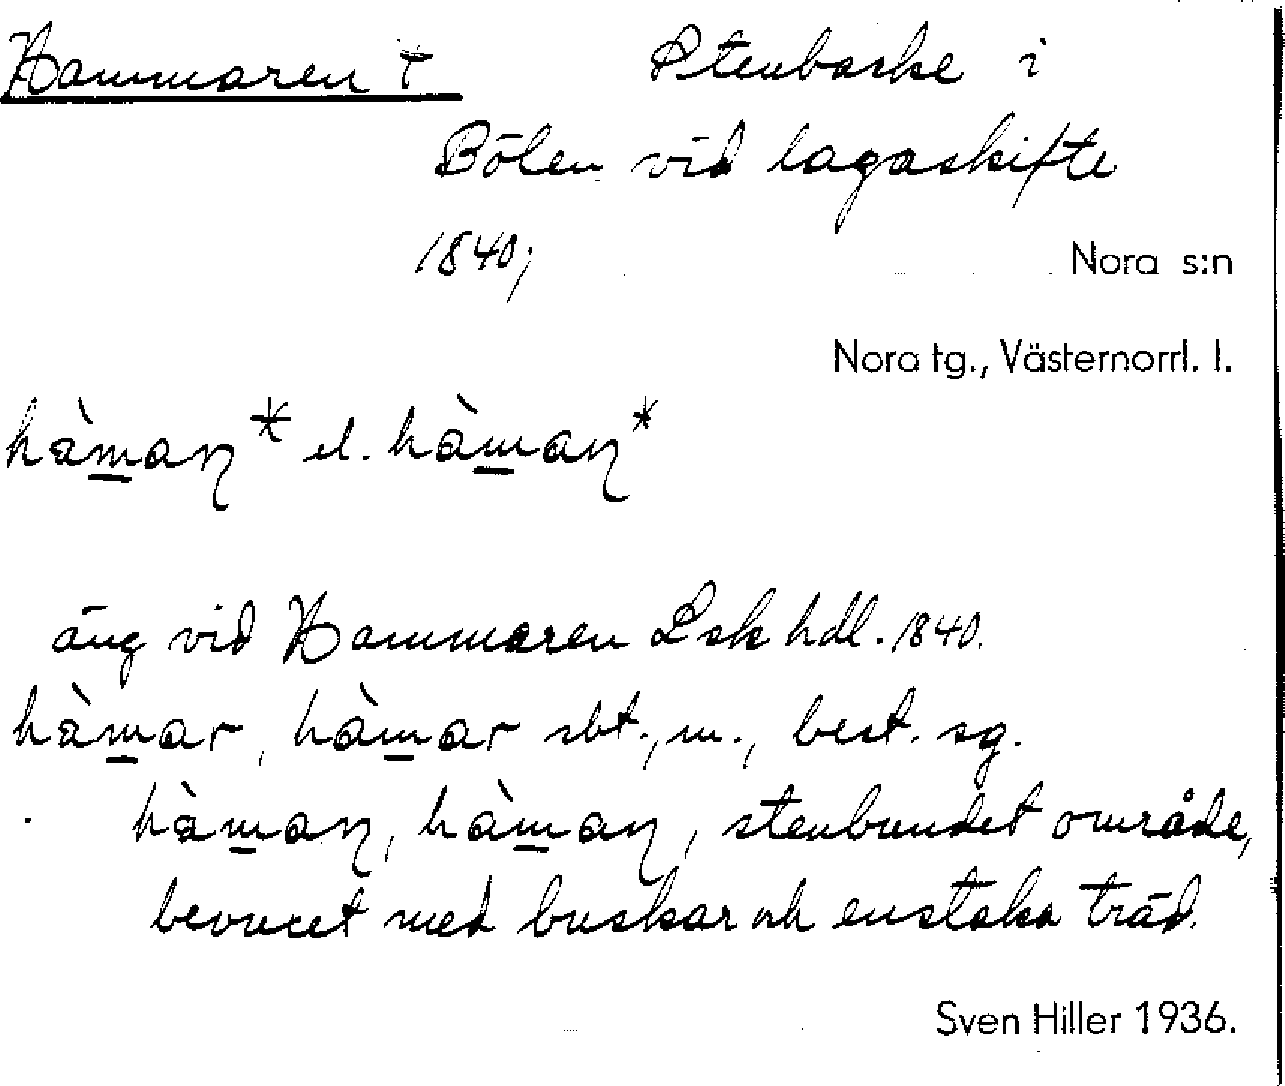 Hammaren † Stenbacke i
Bölen vid lagaskifte
1840;
Nora s:n
Nora tg., Västernorrl. l.
hàm̲aɳ* el. hàm̲aɳ*
äng vid Hammaren Lsk hdl. 1840.
hàm̲ar, hàm̲ar sbt., m., best. sg.
hàm̲aɳ, hàm̲aɳ, stenbundet område,
bevuxet med buskar och enstaka träd.
Sven Hiller 1936.